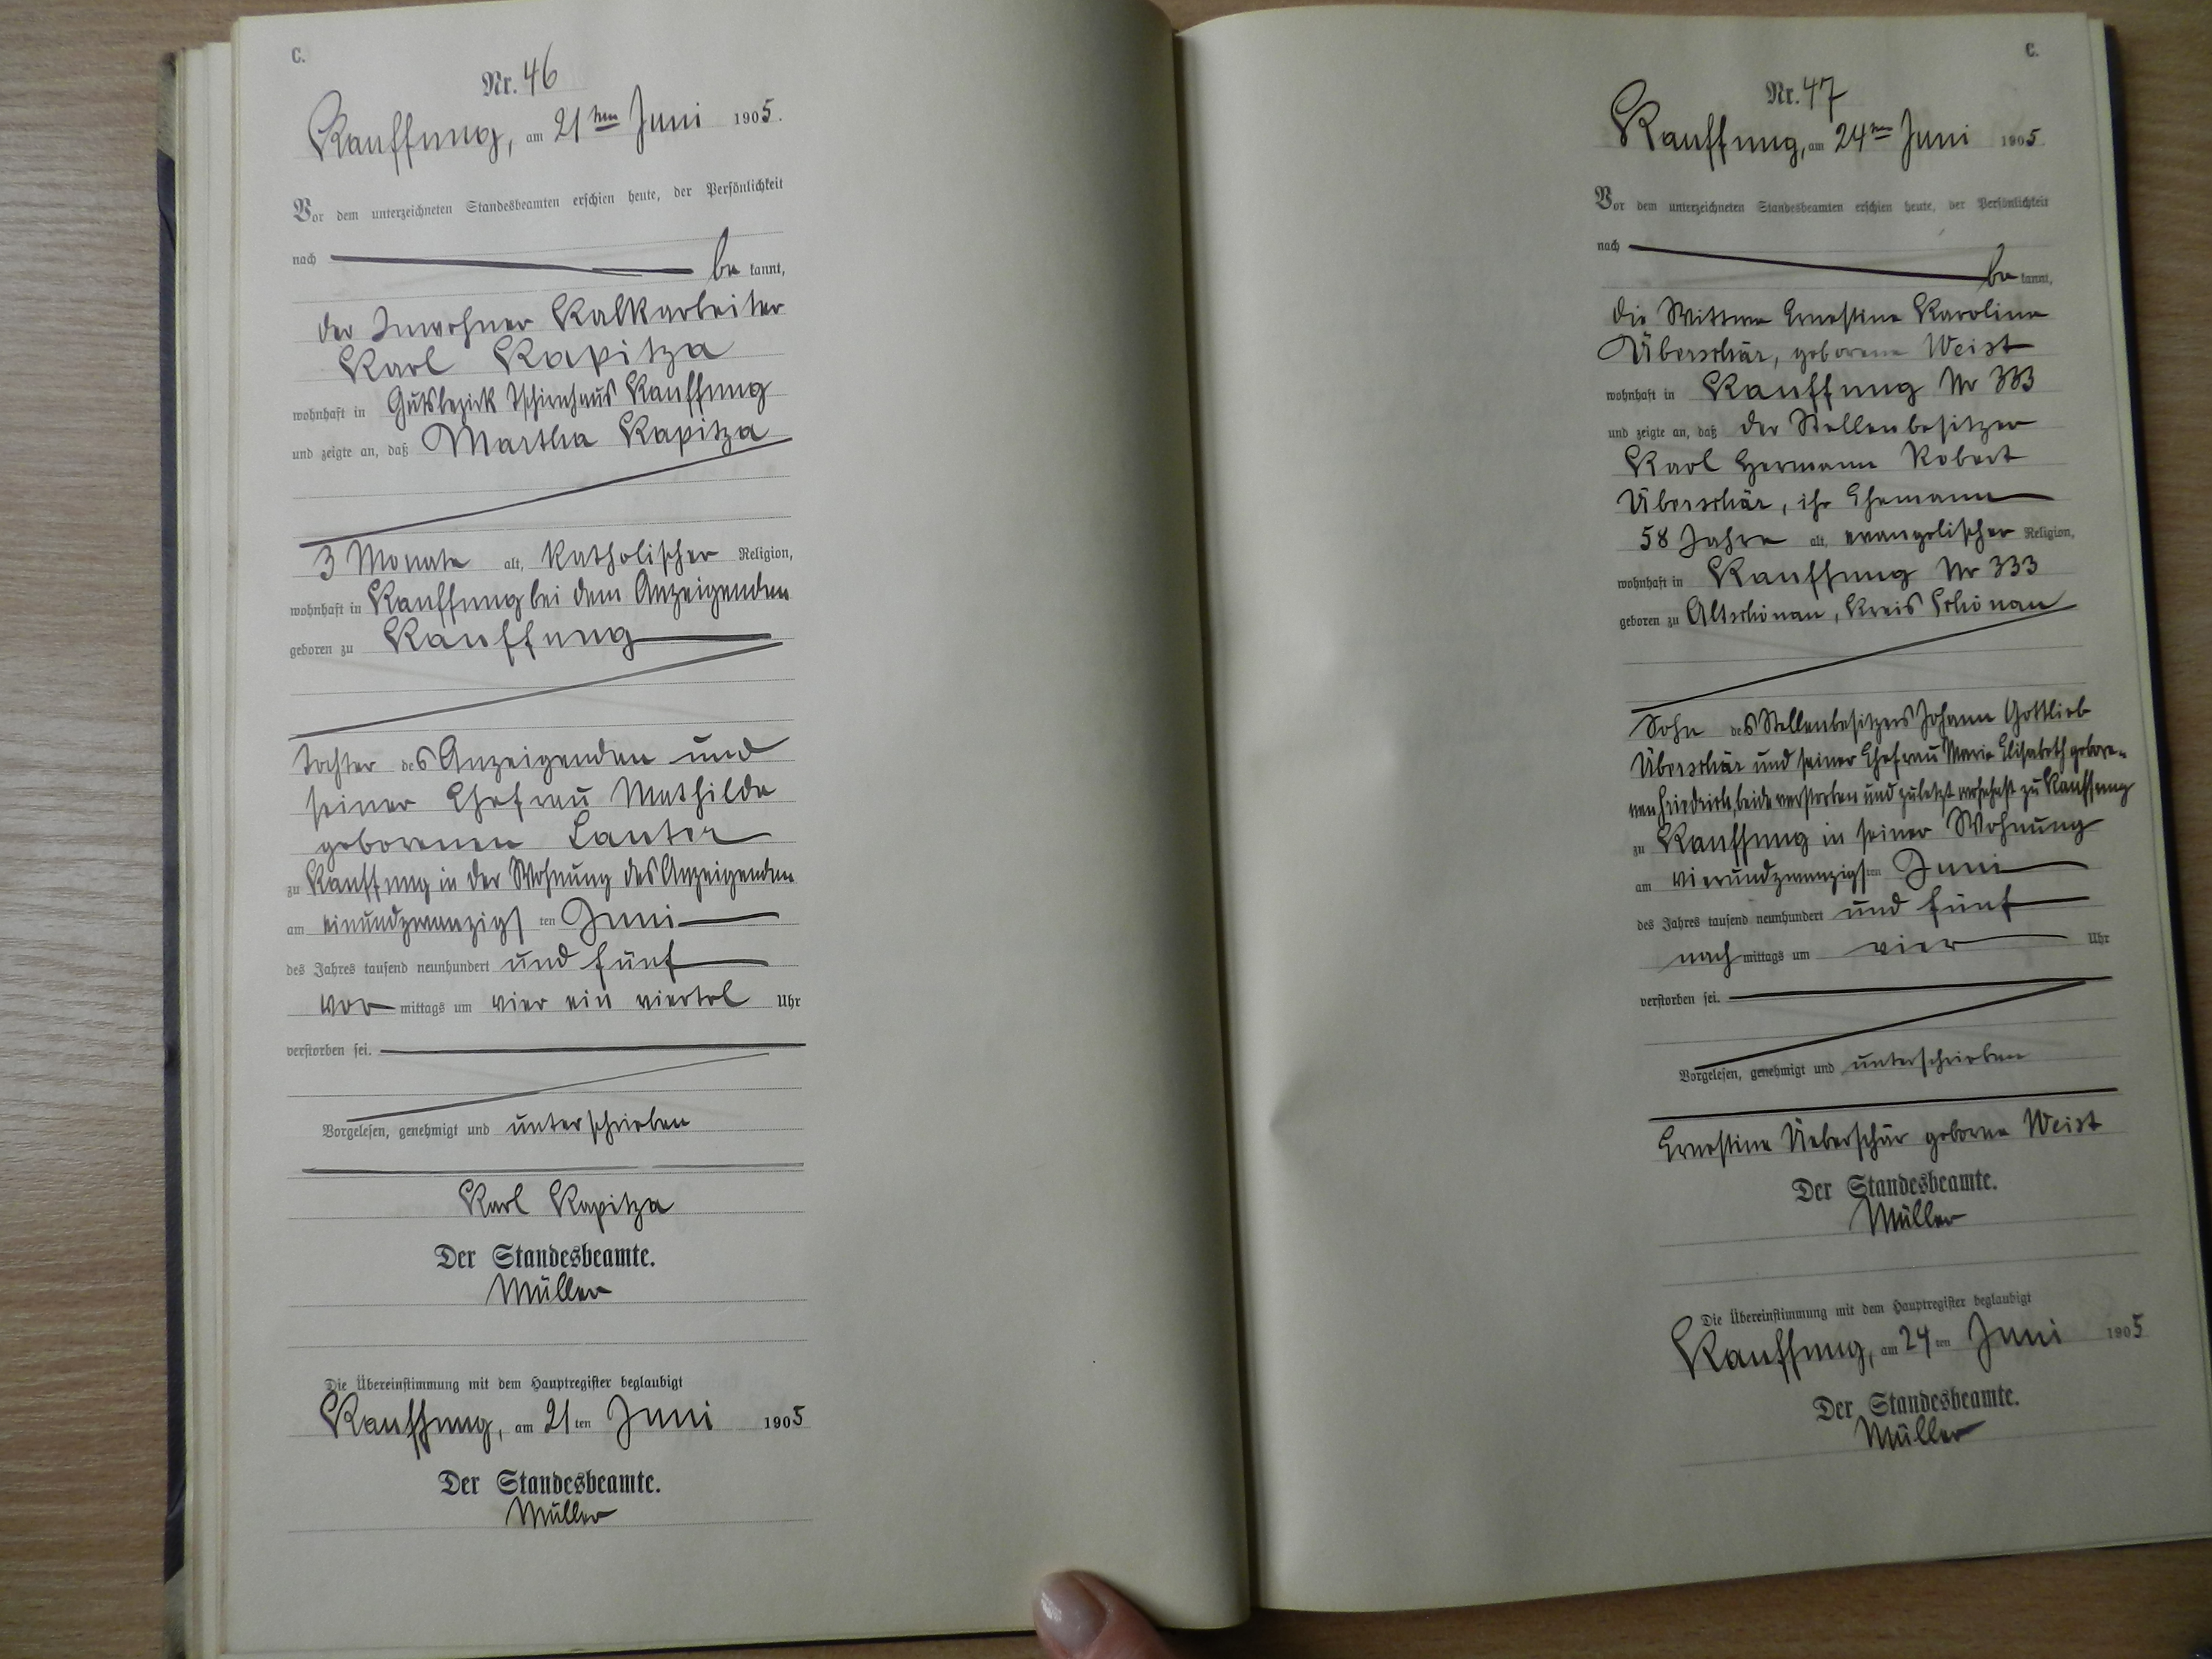 C.
Nr. 46
Kauffung, am 21ten Juni 1905.
Vor dem unterzeichneten Standesbeamten erschien heute, der Persönlichkeit
nach be kannt,
der Inwohner Kalkarbeiter
Karl Kapitza
wohnhaft in Gutsbezirk Tschirnhaus Kauffung
und zeigte an, daß Martha Kapitza
3 Monate alt, katholischer Religion,
wohnhaft in Kauffung bei dem Anzeigenden
geboren zu Kauffung
Tochter des Anzeigenden und
seiner Ehefrau Mathilde
geborenen Lauter
zu Kauffung in der Wohnung des Anzeigenden
am einundzwanzigsten Juni
des Jahres tausend neunhundert und fünf
vor mittags um vier ein viertel Uhr
verstorben sei.
Vorgelesen, genehmigt und unterschrieben
Karl Kapitza
Der Standesbeamte.
Müller
Die Übereinstimmung mit dem Hauptregister beglaubigt
Kauffung, am 21ten Juni 1905
Der Standesbeamte.
Müller
C.
Nr. 47
Kauffung, am 24ten Juni 1905.
Vor dem unterzeichneten Standesbeamten erschien heute, der Persönlichkeit
nach be kannt,
die Wittwe Ernestine Karoline
Überschär, geborene Weist
wohnhaft in Kauffung Nr 333
und zeigte an, daß der Stellenbesitzer
Karl Hermann Robert
Überschär, ihr Ehemann
58 Jahre alt, evangelischer Religion,
wohnhaft in Kauffung Nr 333
geboren zu Altschönau, Kreis Schönau
Sohn des Stellenbesitzers Johann Gottlieb
Überschär und seiner Ehefrau Marie Elisabeth gebore-
nen Friedrich, beide verstorben und zuletzt wohnhaft zu Kauffung
zu Kauffung in seiner Wohnung
am vierundzwanzigsten Juni
des Jahres tausend neunhundert und fünf
nach mittags um vier Uhr
verstorben sei.
Vorgelesen, genehmigt und unterschrieben
Ernestine Ueberschär geborne Weist
Der Standesbeamte.
Müller
Die Übereinstimmung mit dem Hauptregister beglaubigt
Kauffung, am 24ten Juni 1905
Der Standesbeamte.
Müller